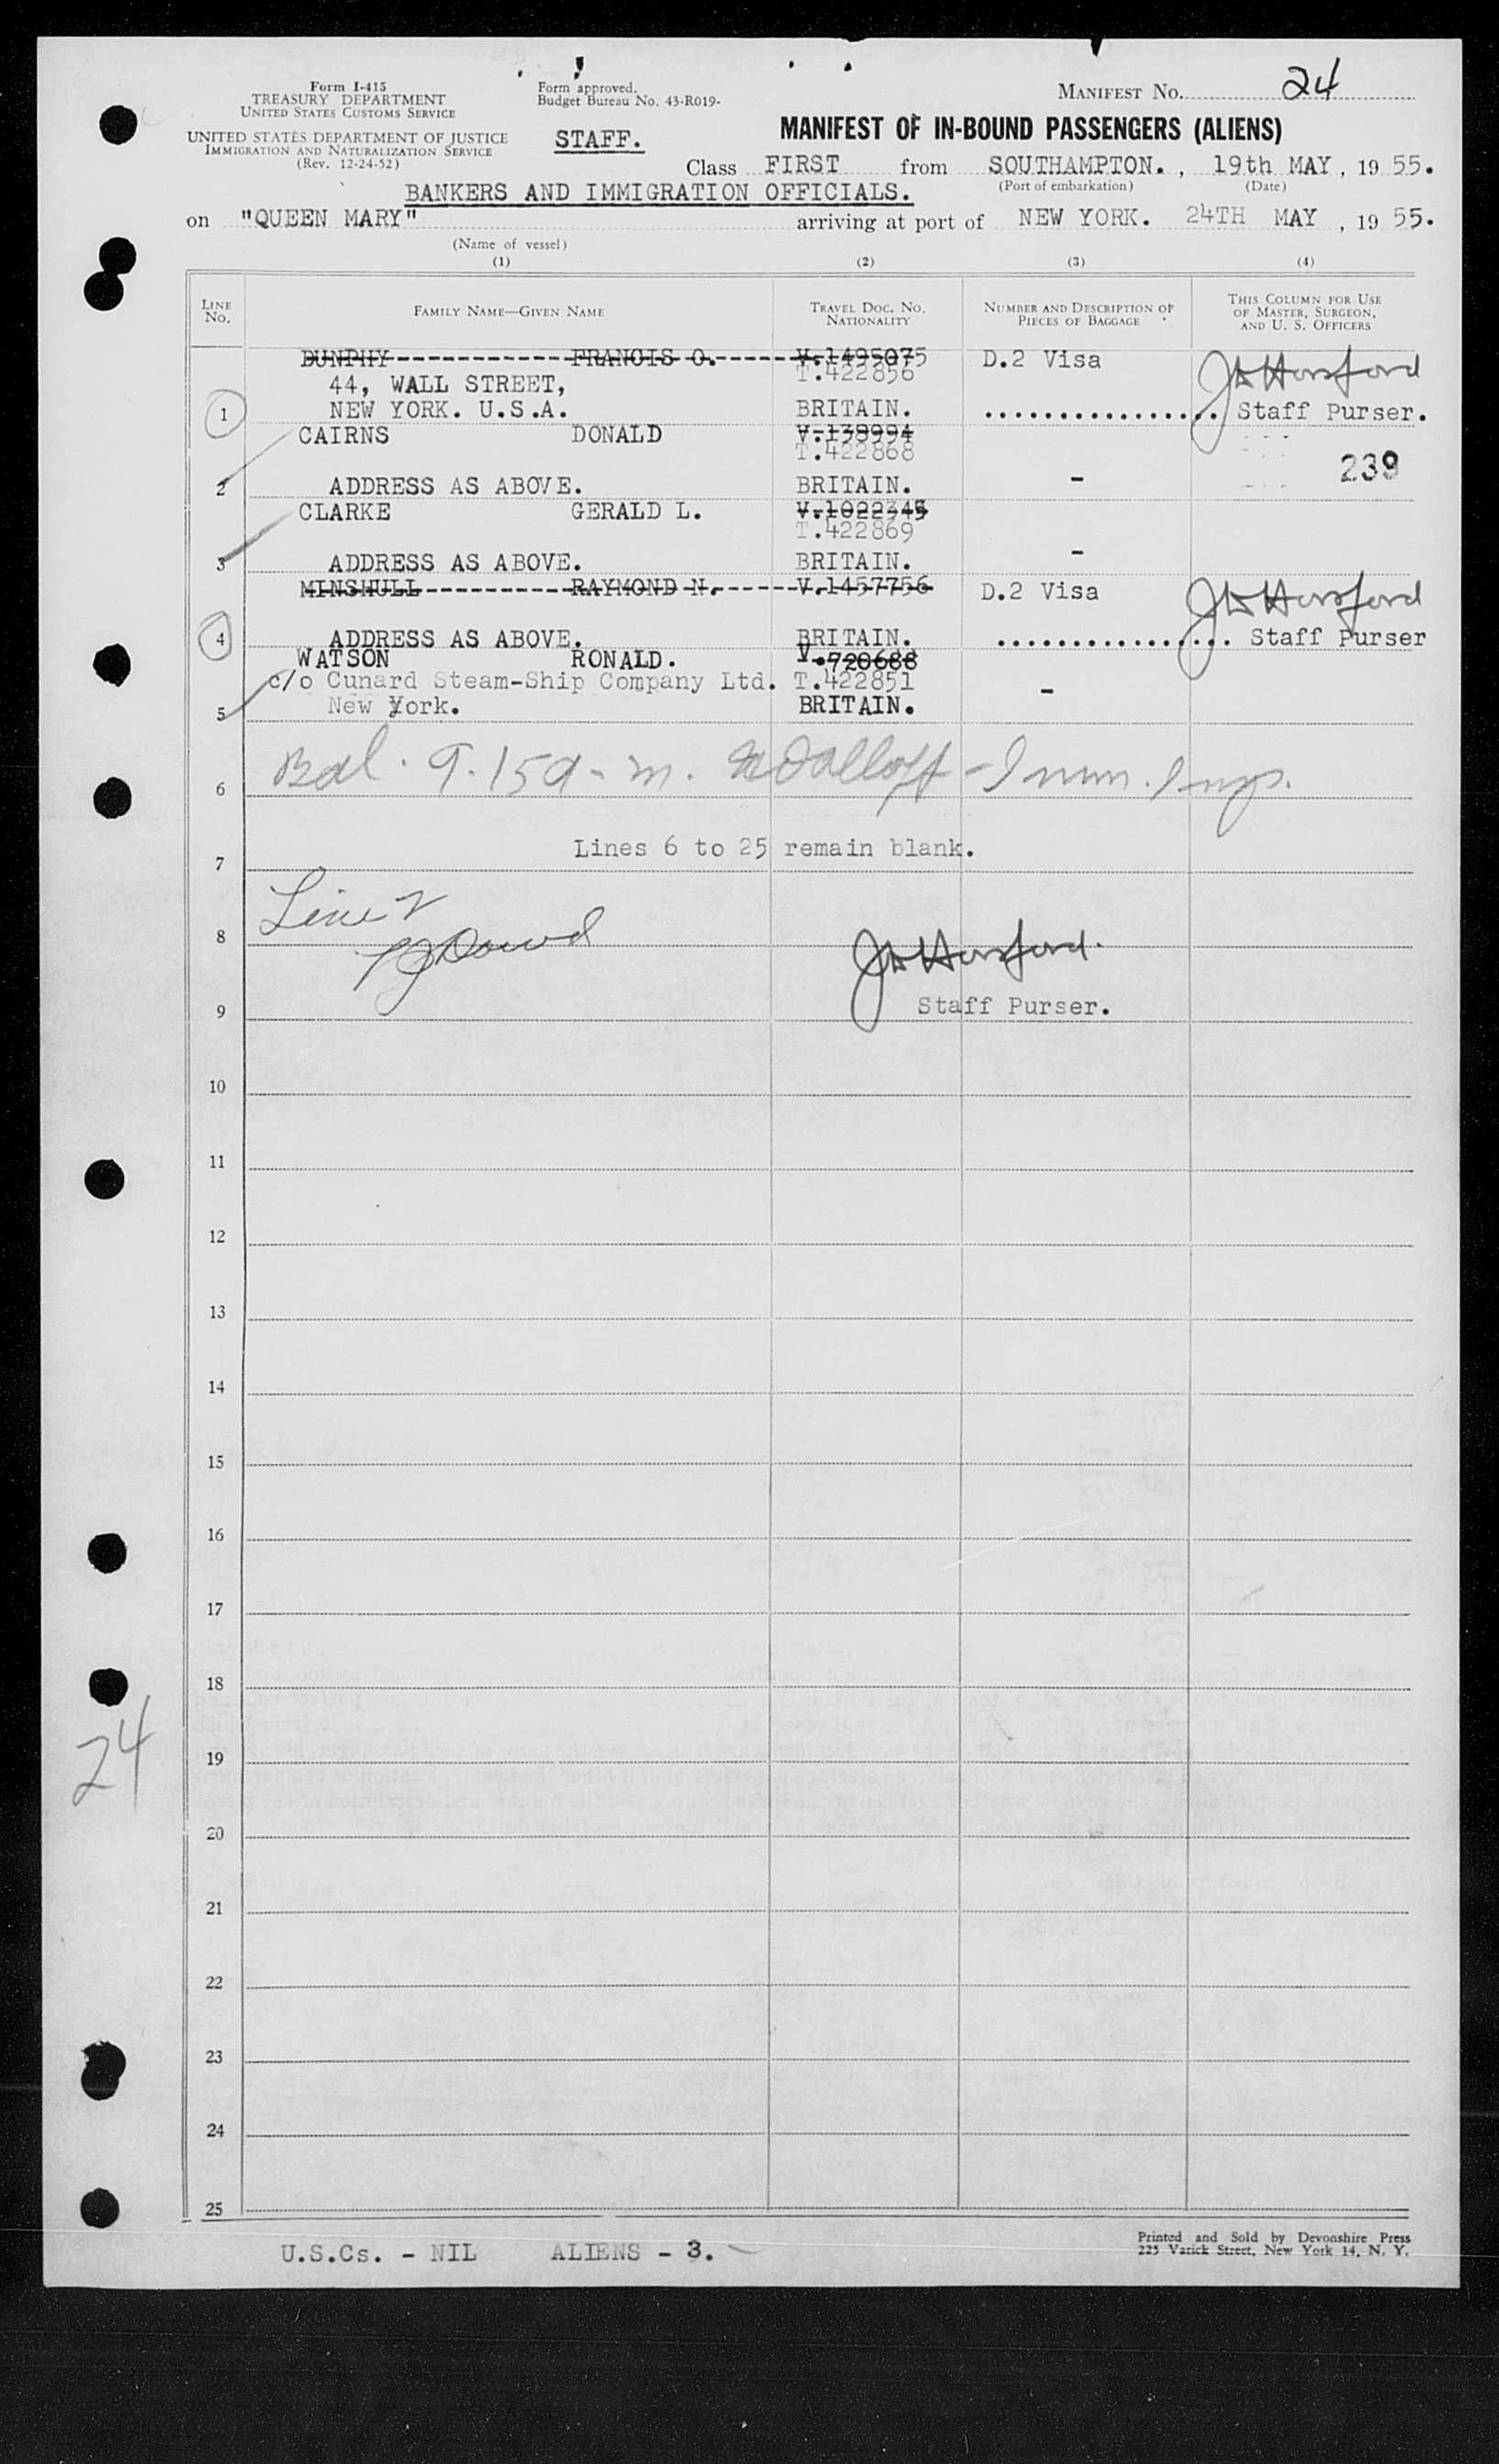 Form I-415
TREASURY DEPARTMENT
UNITED STATES CUSTOMS SERVICE
UNITED STATES DEPARTMENT OF JUSTICE
IMMIGRATION AND NATURALIZATION SERVICE
(Rev. 12-24-52)
Form approved.
Budget Bureau No. 43-R019-
STAFF.
MANIFEST No. 24
MANIFEST OF IN-BOUND PASSENGERS (ALIENS)
Class FIRST from SOUTHAMPTON. , 19th MAY , 19 55.
(Port of embarkation) (Date)
BANKERS AND IMMIGRATION OFFICIALS.
on "QUEEN MARY" arriving at port of NEW YORK. 24TH MAY , 19 55.
(Name of vessel)
(1) (2) (3) (4)
LINE No. FAMILY NAME—GIVEN NAME TRAVEL DOC. NO. NATIONALITY NUMBER AND DESCRIPTION OF PIECES OF BAGGAGE THIS COLUMN FOR USE OF MASTER, SURGEON, AND U. S. OFFICERS
DUNPHY FRANCIS O. V.1495075 D.2 Visa
44, WALL STREET, T.422856
1 NEW YORK. U.S.A. BRITAIN. Staff Purser.
CAIRNS DONALD V.138994
T.422868
239
2 ADDRESS AS ABOVE. BRITAIN. -
CLARKE GERALD L. V.1022345
T.422869
3 ADDRESS AS ABOVE. BRITAIN. -
MINSHULL RAYMOND N. V.1457756 D.2 Visa
4 ADDRESS AS ABOVE. BRITAIN. Staff Purser
WATSON RONALD. V.720688
c/o Cunard Steam-Ship Company Ltd. T.422851 -
5 New York. BRITAIN.
Bal. 9.15 a.m. Imm. Insp.
6
Lines 6 to 25 remain blank.
7
Line 2
8
Staff Purser.
9
10
11
12
13
14
15
16
17
18
24
19
20
21
22
23
24
25
U.S.Cs. - NIL ALIENS - 3.
Printed and Sold by Devonshire Press
225 Varick Street, New York 14, N. Y.